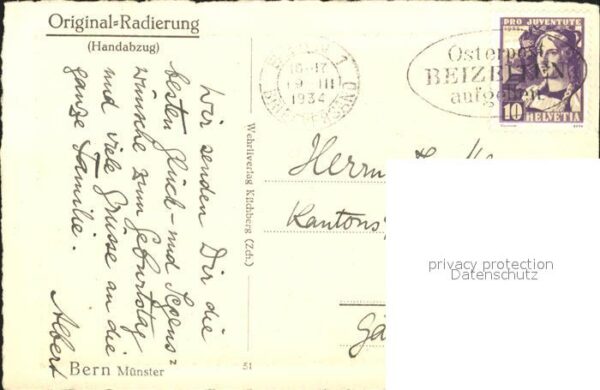 Original=Radierung
(Handabzug)
Wir senden Dir die
besten Glück- und Segens=
wünsche zum Geburtstag
und viele Grüsse an die
ganze Familie.
Albert
Bern Münster
Wehrliverlag Kilchberg (Zch.)
51
1
16-17
III
1934
Osterpost
BEIZEITEN
aufgeben
PRO JUVENTUTE
10
HELVETIA
Herrn
Kantons
privacy protection
Datenschutz